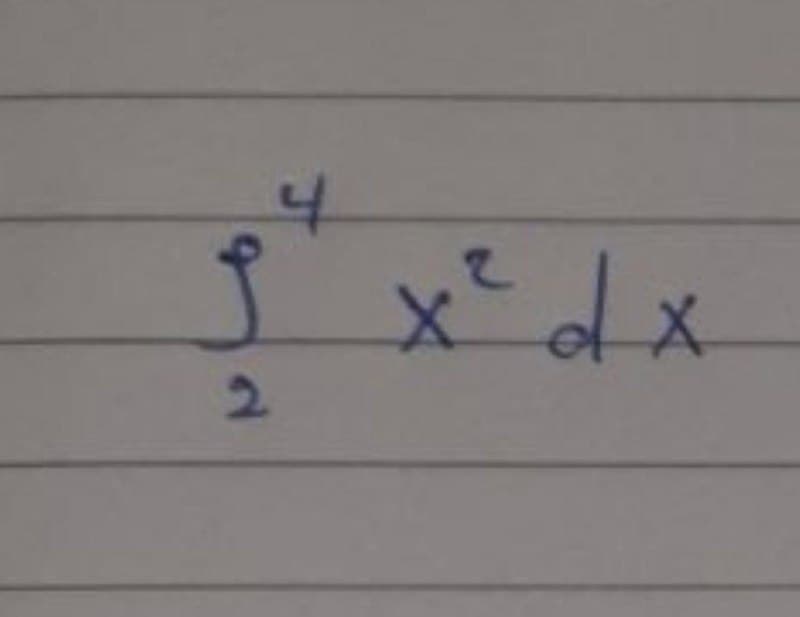 ∫₂⁴ x² dx